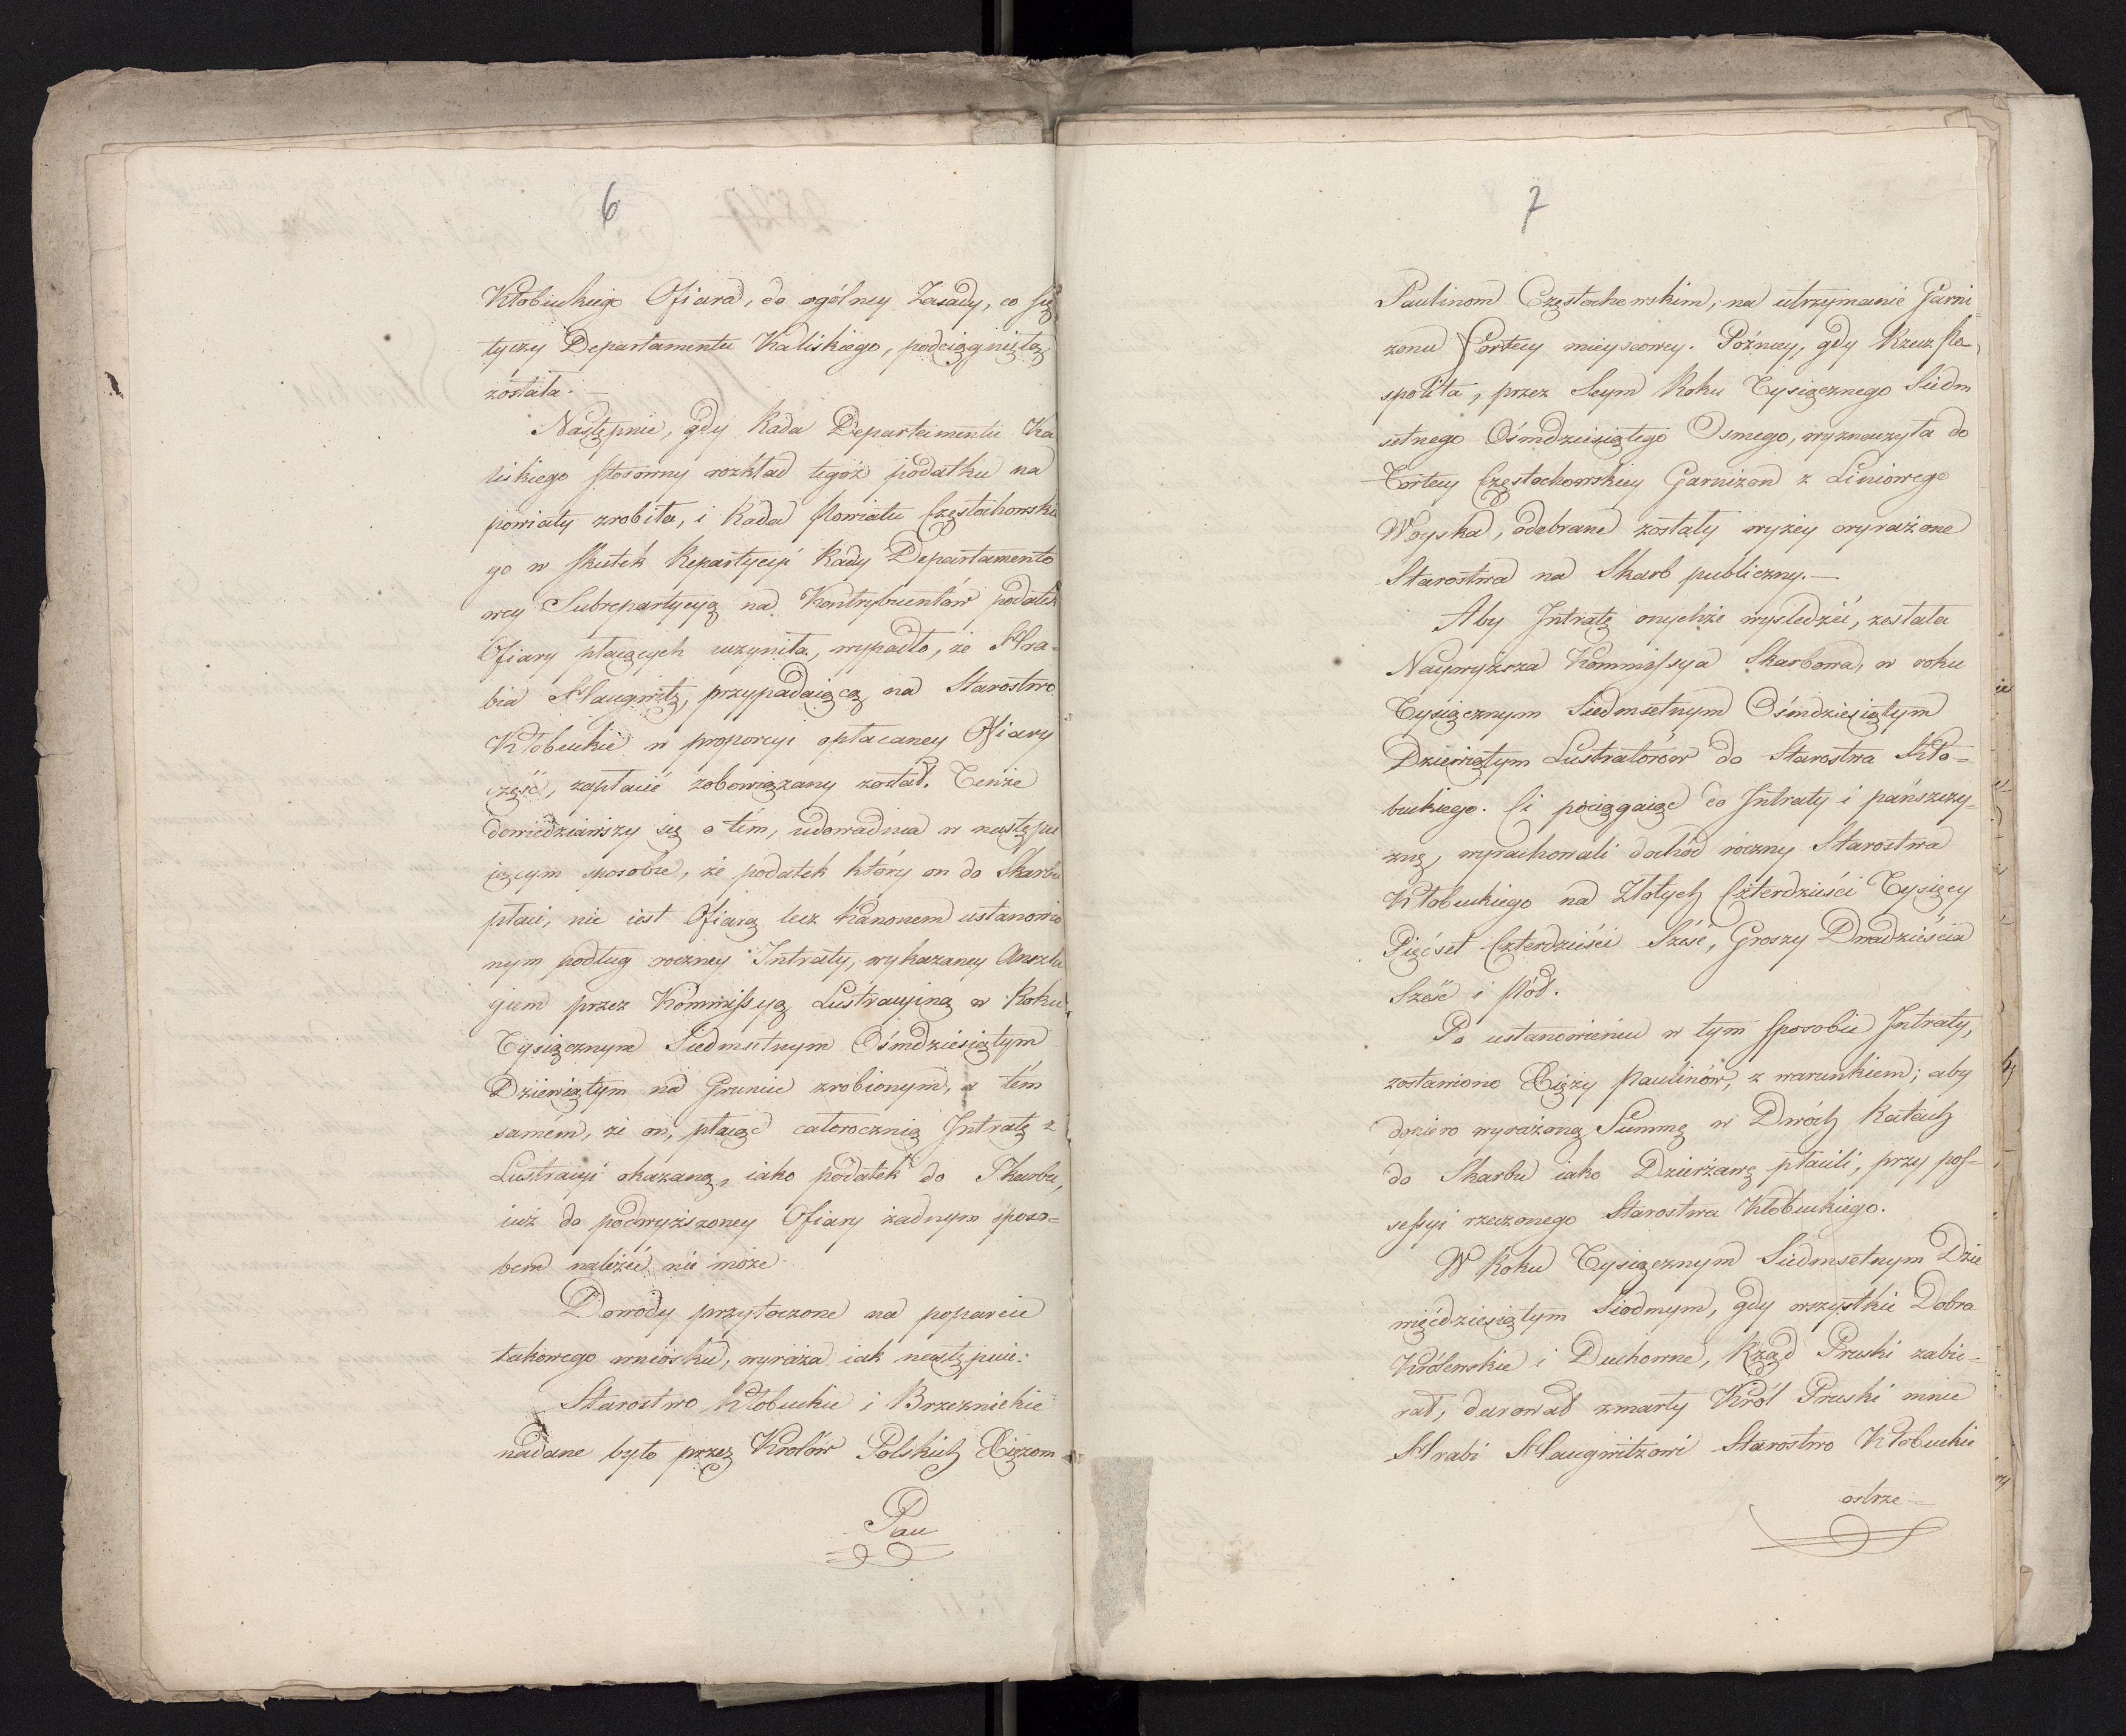 6
Kłobuckiego Ofiara, do ogólney Zasady, co się
tyczy Departamentu Kaliskiego, podciągniętą
została.—
Następnie, gdy Rada Departamentu Ka
liskiego stosowny rozkład tegóż podatku na
powiaty zrobiła, i Rada Powiatu Częstochowskie
go w skutek Repartycyi Rady Departamento
wey Subrepartycyą na Kontrybuentów podatek
Ofiary płacących uczyniła, wypadło, że Hra-
bia Haugwitz, przypadaiącą na Starostwo
Kłobuckie w proporcyi opłacaney Ofiary
część, zapłacić zobowiązany został. Tenże
dowiedziawszy się o tem, udowadnia w następu
iącym sposobie, że podatek który on do Skarbu
płaci, nie iest Ofiarą lecz Kanonem ustanowio
nym podług roczney Intraty, wykazaney Anszla
gium przez Kommissyą Lustracyiną w Roku
Tysiącznym Siedmsetnym Ośmdziesiątym
Dziewiątym na Gruncie zrobionym, a tém
samém, że on, płacąc całoroczną Intratę z
Lustracyi okazaną, iako podatek do Skarbu,
iuż do podwyższoney Ofiary żadnym sposo-
bem należéć nie może.
Dowody przytoczone na poparcie
takowego wniosku, wyraża iak następuie:
Starostwo Kłobuckie i Brzeznickie
nadane było przez Krolów Polskich Xiężom
Pau
7
Paulinom Częstochowskim, na utrzymanie Garni-
zonu Fortecy mieyscowey. Pózniey, gdy Rzecz Po-
spolita, przez Seym Roku Tysiącznego Siedm
setnego Ośmdziesiątego Osmego, wyznaczyła do
Fortecy Częstochowskiey Garnizon z Liniowego
Woyska, odebrane zostały wyżey wyrażone
Starostwa na Skarb publiczny.—
Aby Intratę onychże wyśledzić, zesłała
Naywyższa Kommissya Skarbowa, w roku
Tysiącznym Siedmsetnym Ośmdziesiątym
Dziewiątym Lustratorów do Starostwa Kło-
buckiego. Ci pociągaiąc do Intraty i pańszczy-
znę, wyrachowali dochód roczny Starostwa
Kłobuckiego na Złotych Czterdzieści Tysięcy
Pięćset Czterdzieści Sześć, Groszy Dwadzieścia
Sześć i Pół.
Po ustanowieniu w tym sposobie Intraty,
zostawiono Xięży Paulinów, z warunkiem; aby
dopiero wyrażoną Summę w Dwóch Ratach
do Skarbu iako Dzierżawę płacili, przy pos-
sessyi rzeczonego Starostwa Kłobuckiego.
W Roku Tysiącznym Siedmsetnym Dzie
więćdziesiątym Siodmym, gdy wszystkie Dobra
Królewskie i Duchowne, Rząd Pruski zabie-
rał, darował zmarły Król Pruski mnie
Hrabi Haugwitzowi Starostwo Kłobuckie
ostrze-